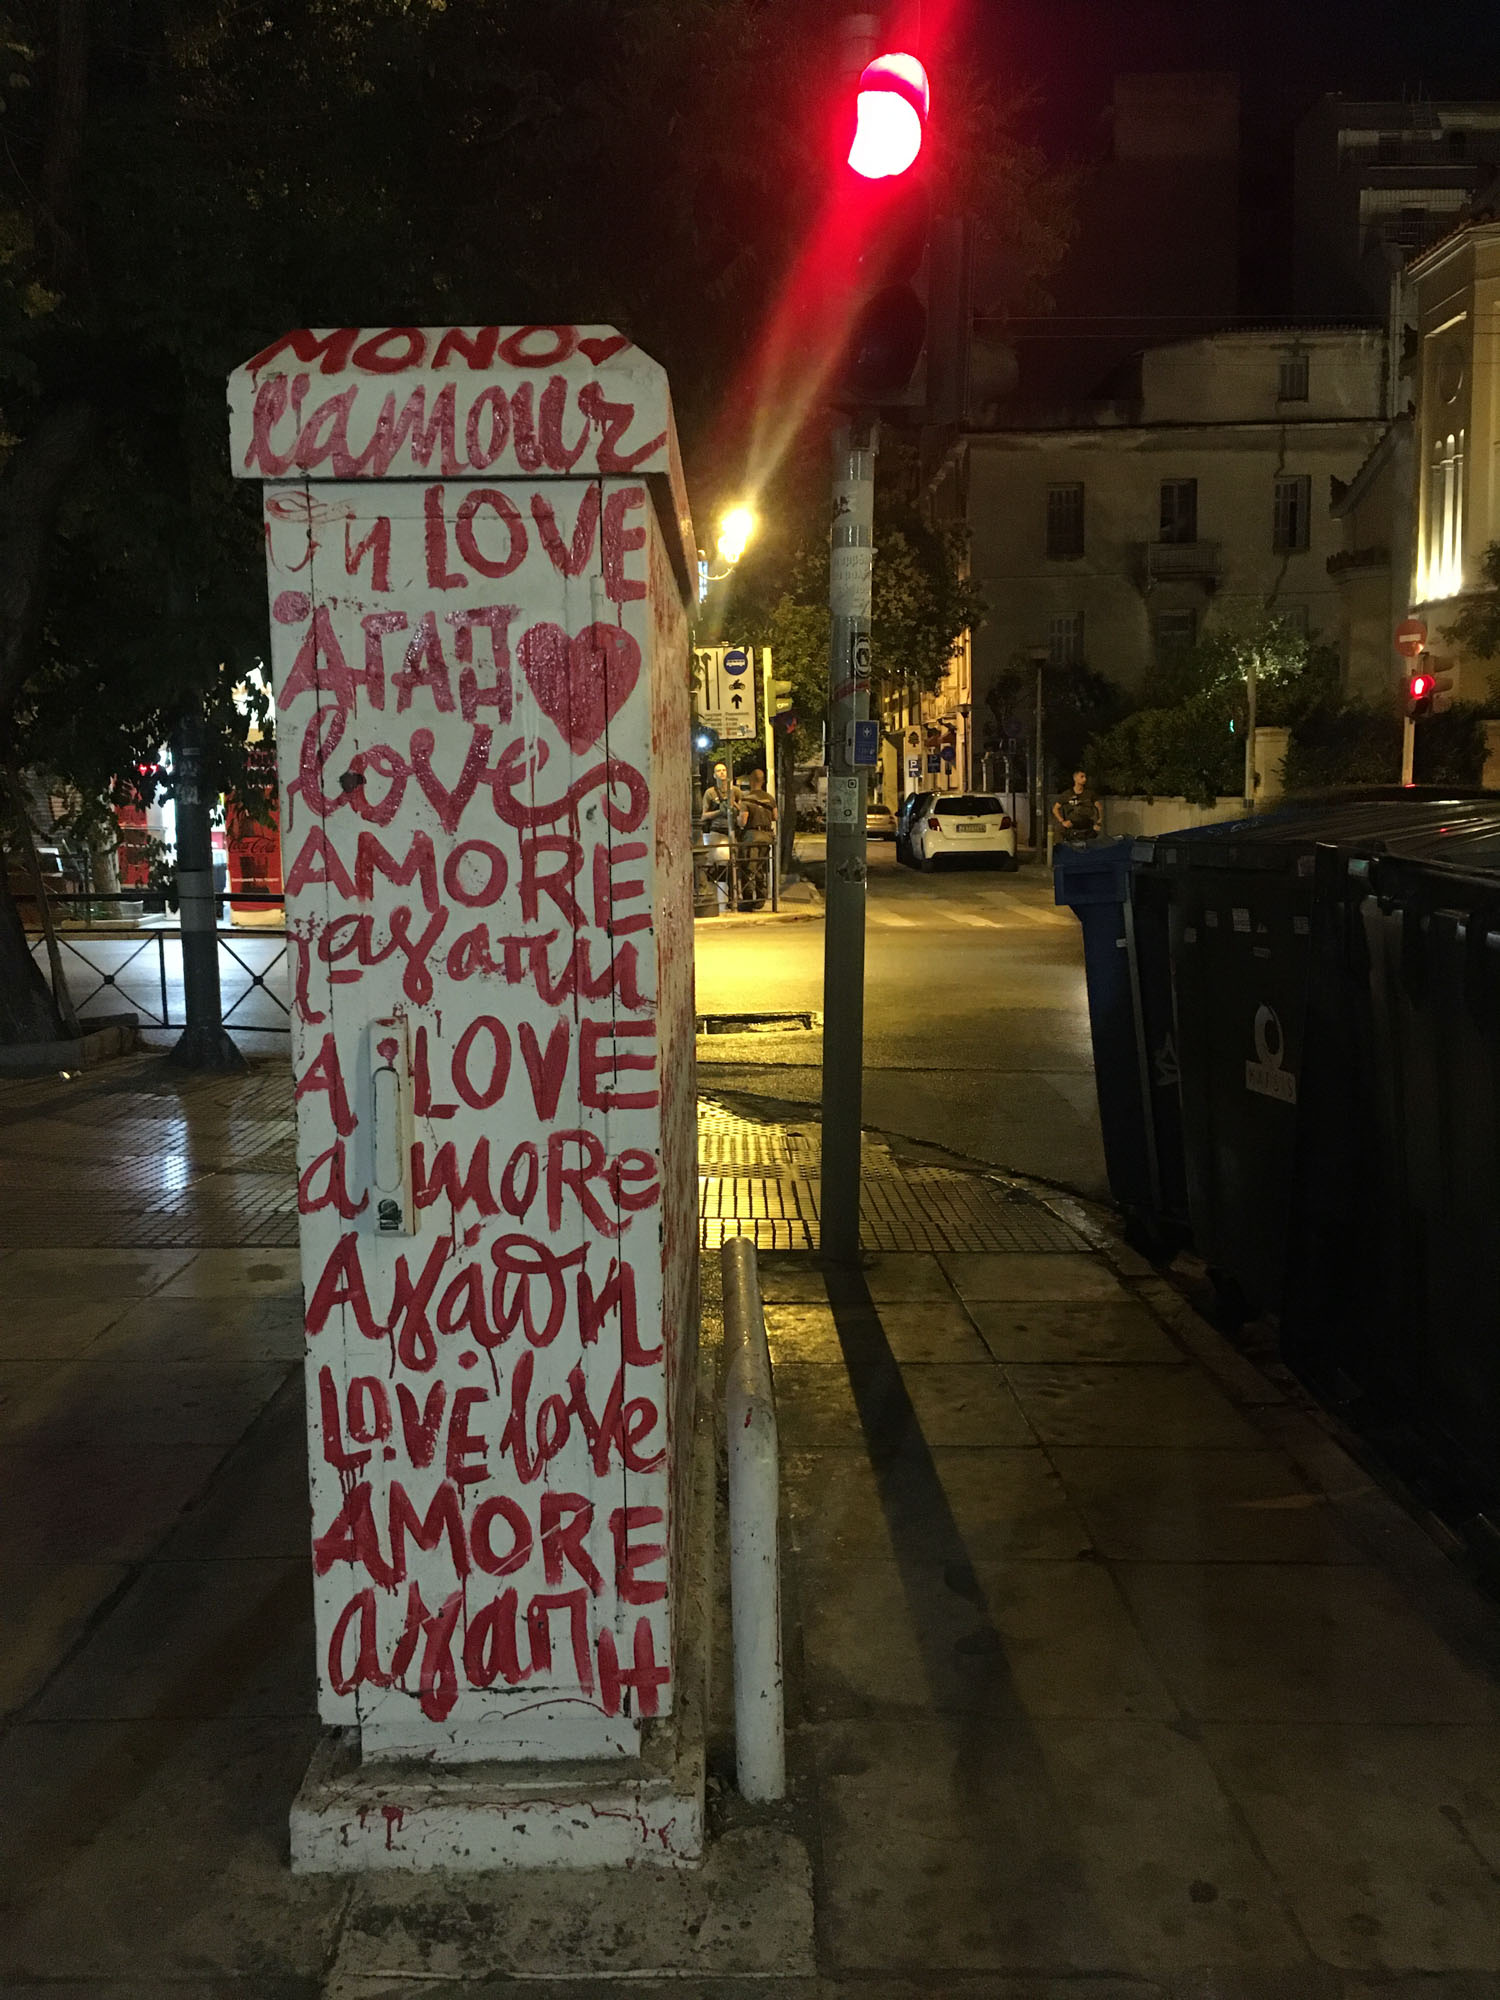 ΜΟΝΟ
l'amour
LOVE
ΑΓΑΠΗ
love
AMORE
αγαπη
A LOVE
amoRe
Αγάπη
LOVE love
AMORE
αγαπΗ
Coca-Cola
P